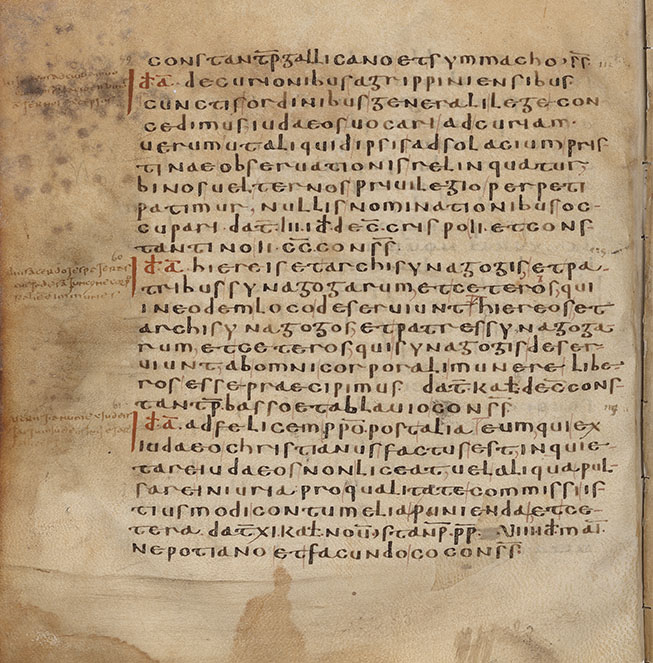 constantp̄ gallicano et symmacho s̄s̄
id̄ a decurionibus agrippiniensibus
cunctis ordinibus generali lege con
cedimus iudaeos uocari ad curiam
uerum ut aliquid ipsis ad solacium pris
tinae obseruationis relinquatur
binos uel ternos priuilegio perpeti
patimur nullis nominationibus oc
cupari dat̄ iii id̄ dec̄ crispo ii et cons
tantino ii c̄c̄ cons̄s̄
id̄ a hiereis et archisynagogis et pa
tribus synagogarum et ceteros qui
in eodem loco deseruiunt hiereos et
archisynagogos et patres synagoga
rum et ceteros qui synagogis deser
uiunt ab omni corporali munere libe
ros esse praecipimus dat̄ kal̄ dec cons
tantp̄ basso et ablauio cons̄s̄
id̄ a ad felicem pp̄o post alia eum qui ex
iudaeo christianus factus est inquie
tare iudaeos non liceat uel aliqua pul
sare iniuria pro qualitate commissi is
tiusmodi contumelia punienda et ce
tera dat̄ xi kal̄ nou̅ stanp̄ pp̄ uiii id̄ mai̅
nepotiano et facundo co cons̄s̄